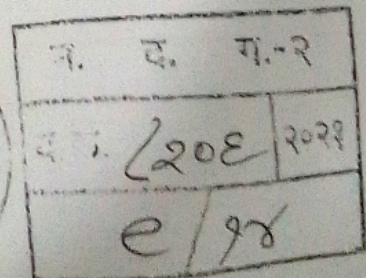 न. द. ग.-२
८२०६ २०२१
९/१४